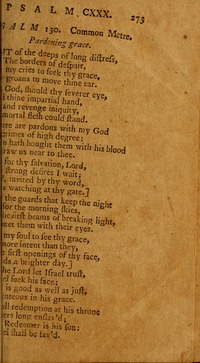 PSALM CXXX. 273
SALM 130. Common Metre.
Pardoning grace.
UT of the deeps of long distress,
The borders of despair,
my cries to seek thy grace,
groans to move thine ear.
God, should thy severer eye,
thine impartial hand,
and revenge iniquity,
mortal flesh could stand.
ere are pardons with my God
crimes of high degree;
n hath bought them with his blood
raw us near to thee.
for thy salvation, Lord,
strong desires I wait;
invited by thy word,
watching at thy gate.]
the guards that keep the night
for the morning skies,
the first beams of breaking light,
meet them with their eyes.
my soul to see thy grace,
more intent than they,
first openings of thy face,
ds a brighter day.]
he Lord let Israel trust,
el seek his face;
is good as well as just,
enteous in his grace.
ull redemption at his throne
ers long enslav'd;
Redeemer is his son:
el shall be sav'd.